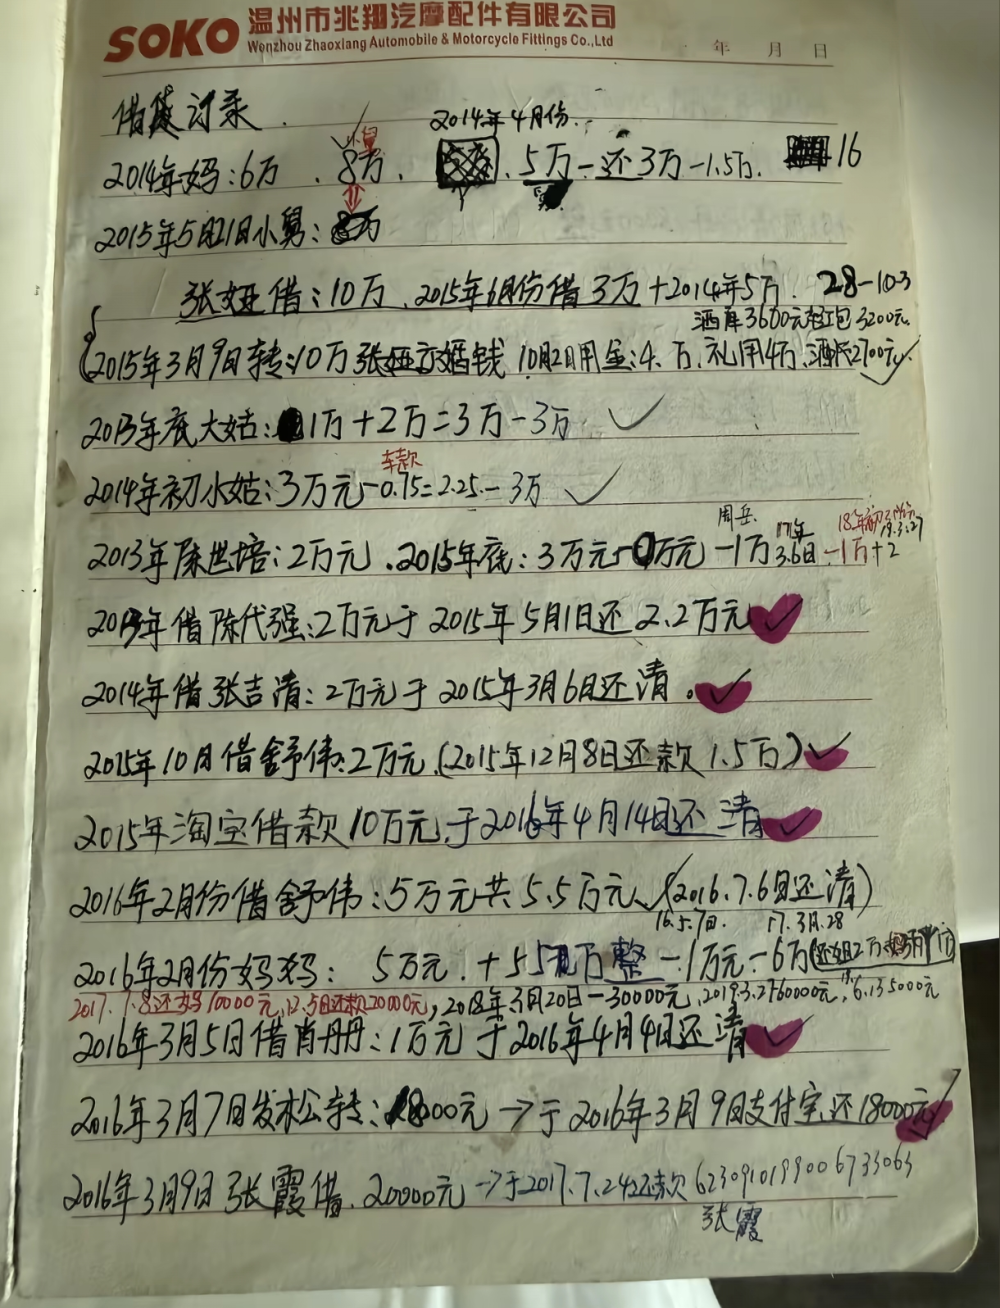 SOKO 温州市兆翔汽摩配件有限公司
Wenzhou Zhaoxiang Automobile & Motorcycle Fittings Co.,Ltd
年 月 日
借 记录
2014年4月份
小舅
2014年妈:6万、8万、5万-还3万-1.5万. 16
2015年5月21日小舅:8万
张娅借:10万、2015年6月份借3万+2014年5万. 28-10-3
酒库3600元红包3200元
2015年3月9日转:10万张娅 婚钱 10月2日用金:4.万.礼用4万.酒 2700元
2013年底大姑:1万+2万=3万-3万
车款
2014年初小姑:3万元-0.75=2.25-3万
周岳 17年 18年 19.3.27
2013年陈世培:2万元、2015年底:3万元-0万元-1万 3.6日-1万+2
年借陈代强:2万元于2015年5月1日还2.2万元
2014年借张吉清:2万元于2015年3月6日还清。
2015年10月借舒伟:2万元.(2015年12月8日还款1.5万)
2015年淘宝借款10万元.于2016年4月14日还清
2016年2月份借舒伟:5万元共5.5万元、(2016.7.6日还清)
16.5.7日. 17.3月.28
2016年2月份妈妈: 5万元.+5 万整-1万元-6万(还姐2万
2017.7.8还妈10000元,12.5日还款20000元,2018年3月20日-30000元,2019.3.27 60000元, 6.13 5000元
2016年3月5日借肖丹:1万元于2016年4月4日还清
2016年3月7日发松公转:18000元→于2016年3月9日支付宝还18000元
2016年3月9日张霞借、20000元→于2017.7.24还款6230910199006733063
张霞